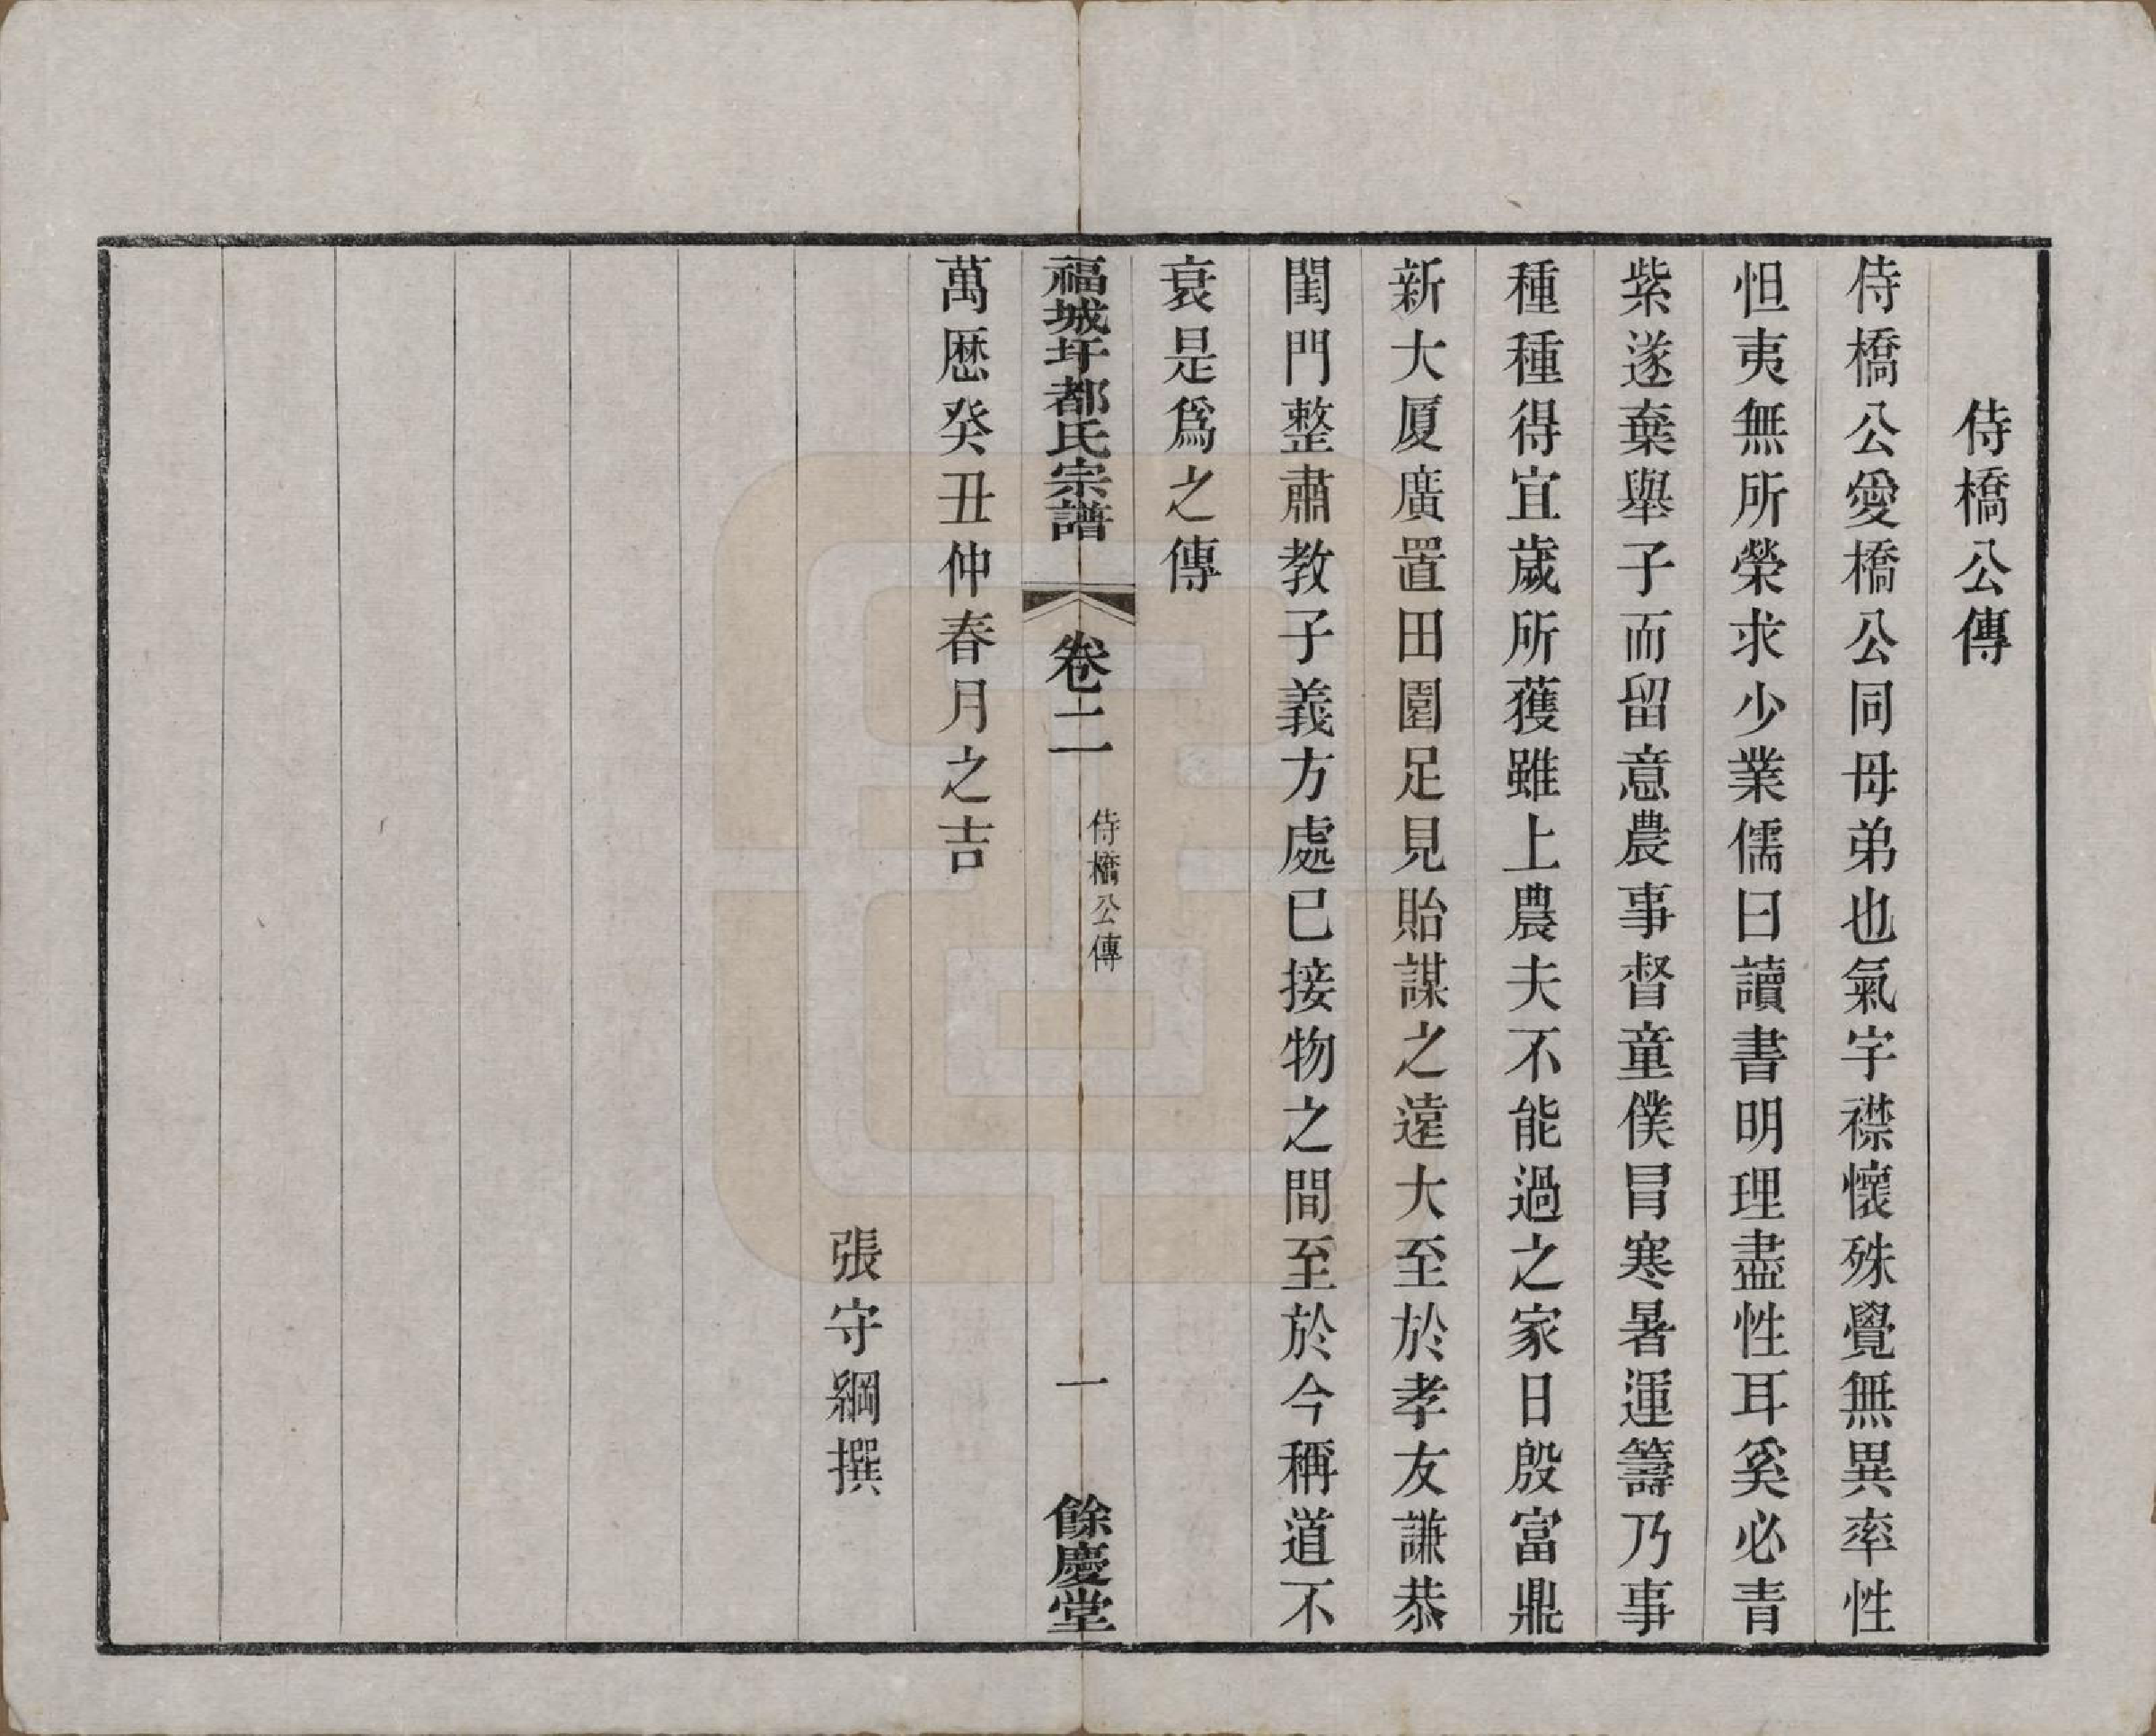 侍橋公傳
侍橋公愛橋公同母弟也氣宇襟懷殊覺無異率性
怛夷無所榮求少業儒曰讀書明理盡性耳奚必青
紫遂棄舉子而留意農事督童僕冒寒暑運籌乃事
種種得宜歲所獲雖上農夫不能過之家日殷富鼎
新大厦廣置田園足見貽謀之遠大至於孝友謙恭
閨門整肅教子義方處已接物之間至於今稱道不
衰是爲之傳
福城圩都氏宗譜 卷二 侍橋公傳 一 餘慶堂
萬厯癸丑仲春月之吉
張守綱撰